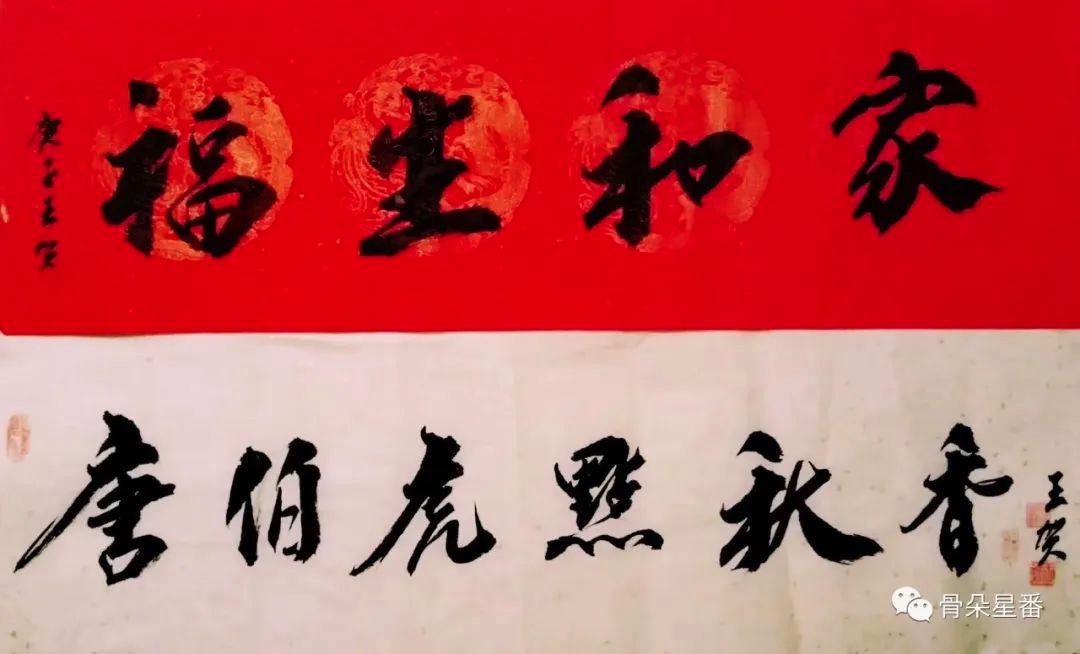 家和生福
庚子王贺
唐伯虎點秋香
王贺
骨朵星番